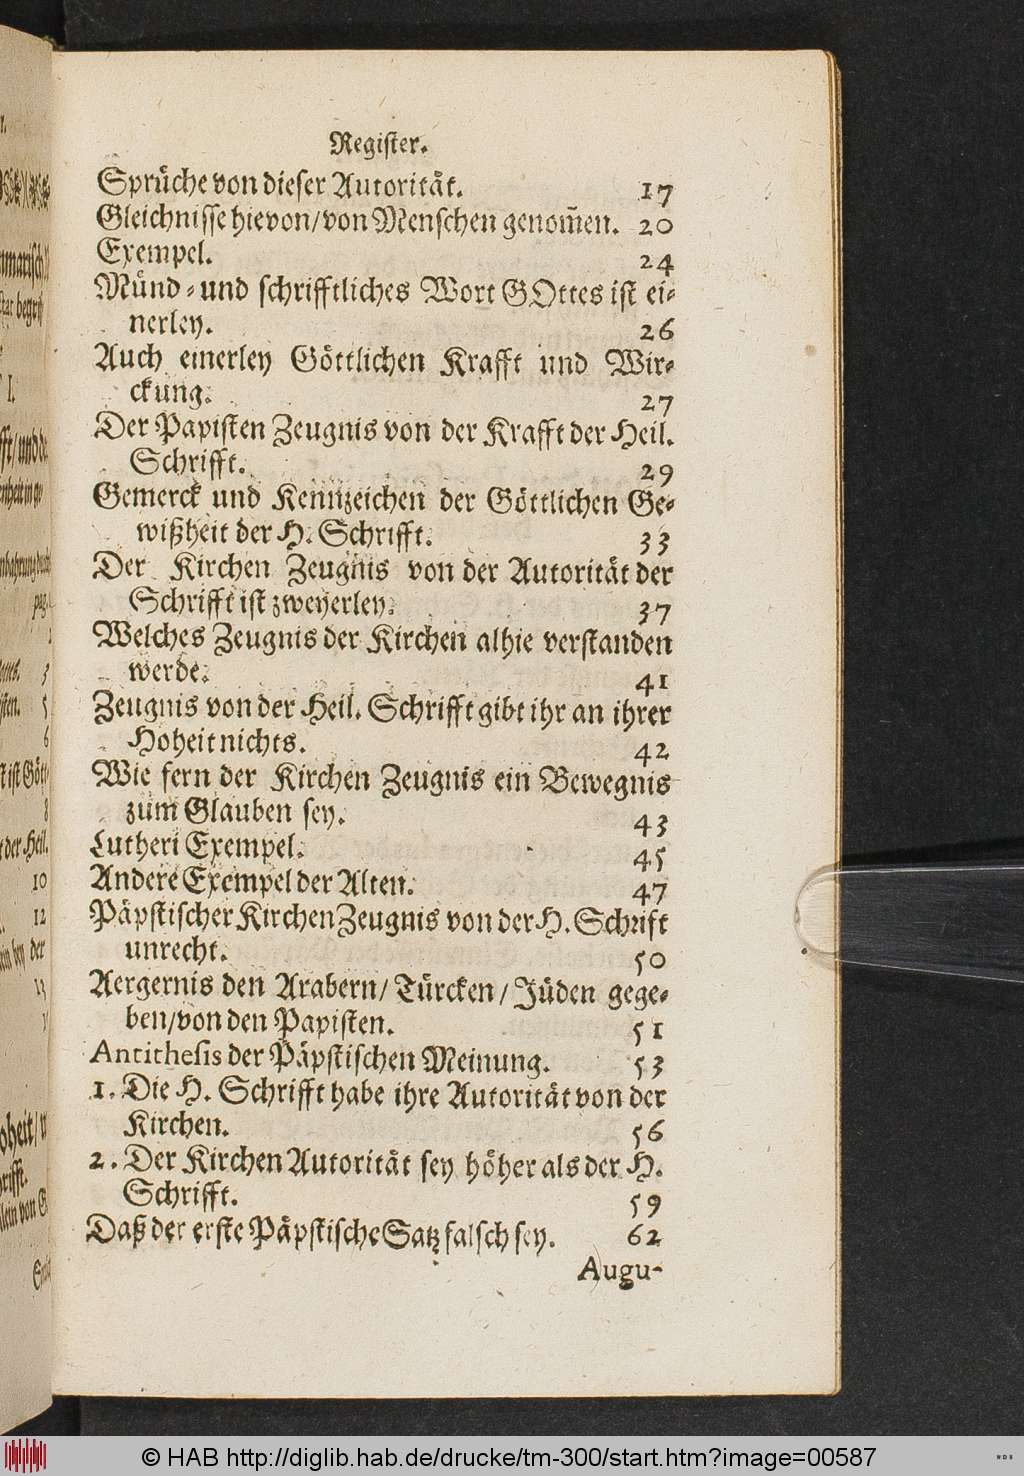 Register.
Sprüche von dieser Autorität. 17
Gleichnisse hievon/von Menschen genom̃en. 20
Exempel. 24
Münd- und schrifftliches Wort GOttes ist ei-
nerley. 26
Auch einerley Göttlichen Krafft und Wir-
ckung. 27
Der Papisten Zeugnis von der Krafft der Heil.
Schrifft. 29
Gemerck und Kennzeichen der Göttlichen Ge-
wißheit der H. Schrifft. 33
Der Kirchen Zeugnis von der Autorität der
Schrifft ist zweyerley. 37
Welches Zeugnis der Kirchen alhie verstanden
werde. 41
Zeugnis von der Heil. Schrifft gibt ihr an ihrer
Hoheit nichts. 42
Wie fern der Kirchen Zeugnis ein Bewegnis
zum Glauben sey. 43
Lutheri Exempel. 45
Andere Exempel der Alten. 47
Päpstischer Kirchen Zeugnis von der H. Schrift
unrecht. 50
Aergernis den Arabern/ Türcken/ Jüden gege-
ben/von den Papisten. 51
Antithesis der Päpstischen Meinung. 53
1. Die H. Schrifft habe ihre Autorität von der
Kirchen. 56
2. Der Kirchen Autorität sey höher als der H.
Schrifft. 59
Daß der erste Päpstische Satz falsch sey. 62
Augu-
© HAB http://diglib.hab.de/drucke/tm-300/start.htm?image=00587